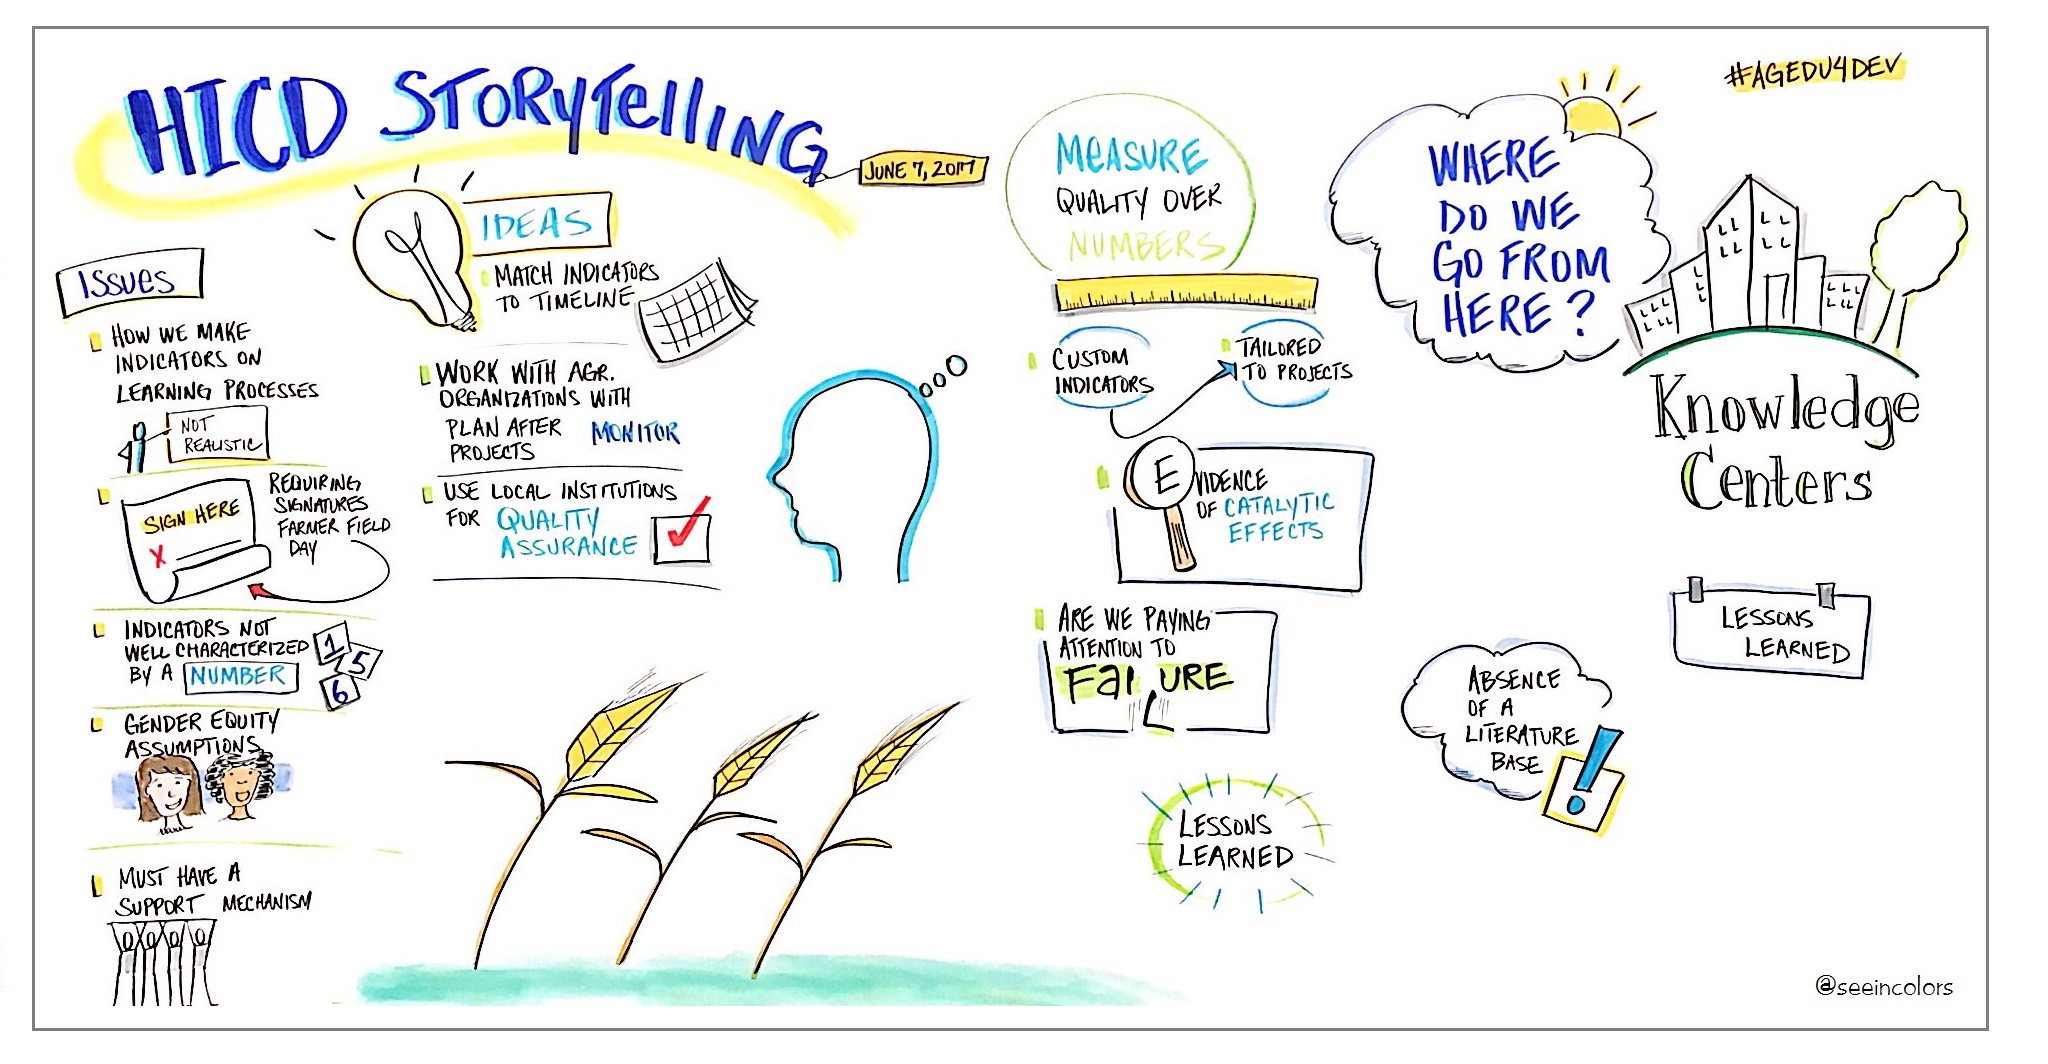 HICD STORYTELLING
JUNE 7, 2017
#AGEDU4DEV
ISSUES
HOW WE MAKE
INDICATORS ON
LEARNING PROCESSES
NOT
REALISTIC
SIGN HERE
X
REQUIRING
SIGNATURES
FARMER FIELD
DAY
INDICATORS NOT
WELL CHARACTERIZED
BY A NUMBER
1
5
6
GENDER EQUITY
ASSUMPTIONS
MUST HAVE A
SUPPORT MECHANISM
IDEAS
MATCH INDICATORS
TO TIMELINE
WORK WITH AGR.
ORGANIZATIONS WITH
PLAN AFTER MONITOR
PROJECTS
USE LOCAL INSTITUTIONS
FOR QUALITY
ASSURANCE
MEASURE
QUALITY OVER
NUMBERS
CUSTOM
INDICATORS
TAILORED
TO PROJECTS
EVIDENCE
OF CATALYTIC
EFFECTS
ARE WE PAYING
ATTENTION TO
FAILURE
LESSONS
LEARNED
WHERE
DO WE
GO FROM
HERE?
Knowledge
Centers
LESSONS
LEARNED
ABSENCE
OF A
LITERATURE
BASE
!
@seeincolors